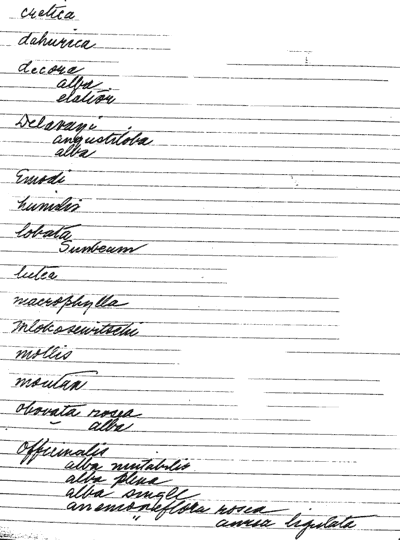 cretica
dahurica
decora
alba
elatior
Delavayi
angustiloba
alba
Emodi
humilis
lobata
Sunbeam
lutea
macrophylla
Mlokosewitschi
mollis
moutan
obovata rosea
" alba
Officinalis
alba mutabilis
alba plena
alba single
anemoneflora rosea
" aurea ligulata